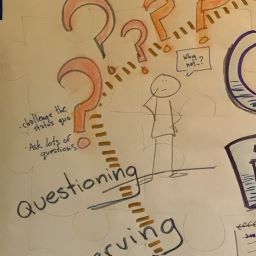 Why
not..?
- challenge the
status quo
- Ask lots of
questions
Questioning
erving